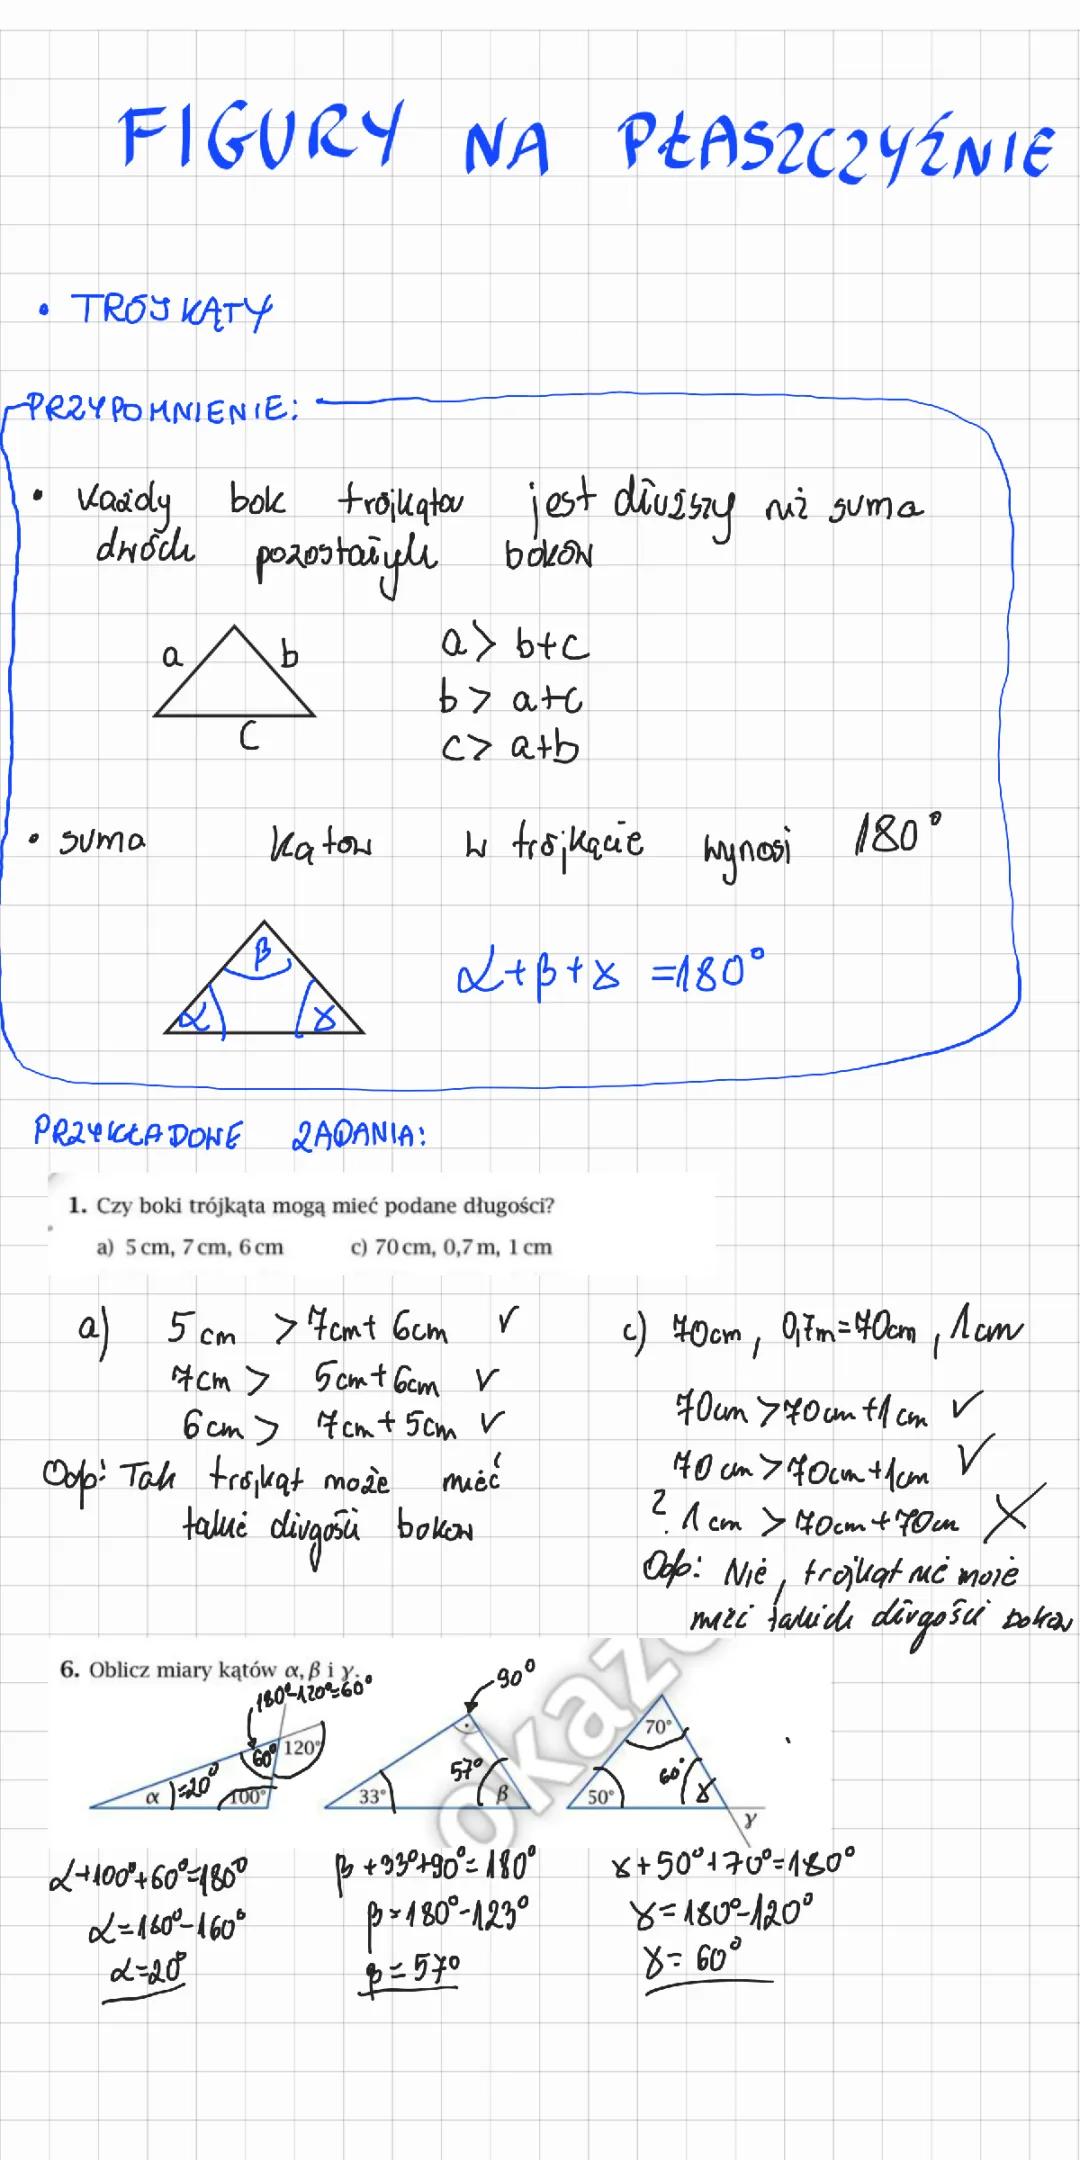 FIGURY NA PŁASZCZYŹNIE
• TRÓJKĄTY
PRZYPOMNIENIE:
• każdy bok trójkąta jest dłuższy niż suma
dwóch pozostałych boków
a b
c
a > b+c
b > a+c
c > a+b
• suma kątów w trójkącie wynosi 180°
β
α γ
α+β+γ =180°
PRZYKŁADOWE ZADANIA:
1. Czy boki trójkąta mogą mieć podane długości?
a) 5 cm, 7 cm, 6 cm c) 70 cm, 0,7 m, 1 cm
a) 5 cm > 7cm + 6cm ✓
7cm > 5cm + 6cm ✓
6cm > 7cm + 5cm ✓
Odp: Tak trójkąt może mieć
takie długości boków
c) 70cm, 0,7m=70cm, 1cm
70cm > 70cm +1cm ✓
70cm > 70cm+1cm ✓
? 1cm > 70cm + 70cm X
Odp: Nie, trójkąt nie może
mieć takich długości boków
6. Oblicz miary kątów α, β i γ.
180°-120°=60°
60° 120°
α =20° 100°
90°
57°
33° β
70°
60°
50° γ
γ
okaz
α+100°+60°=180°
α=180°-160°
α=20°
β+33°+90°=180°
β=180°-123°
β=57°
γ+50°+70°=180°
γ=180°-120°
γ=60°